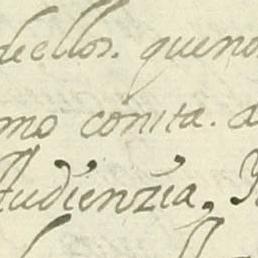 deellos. queno
mo cónita. a
Audienzia,